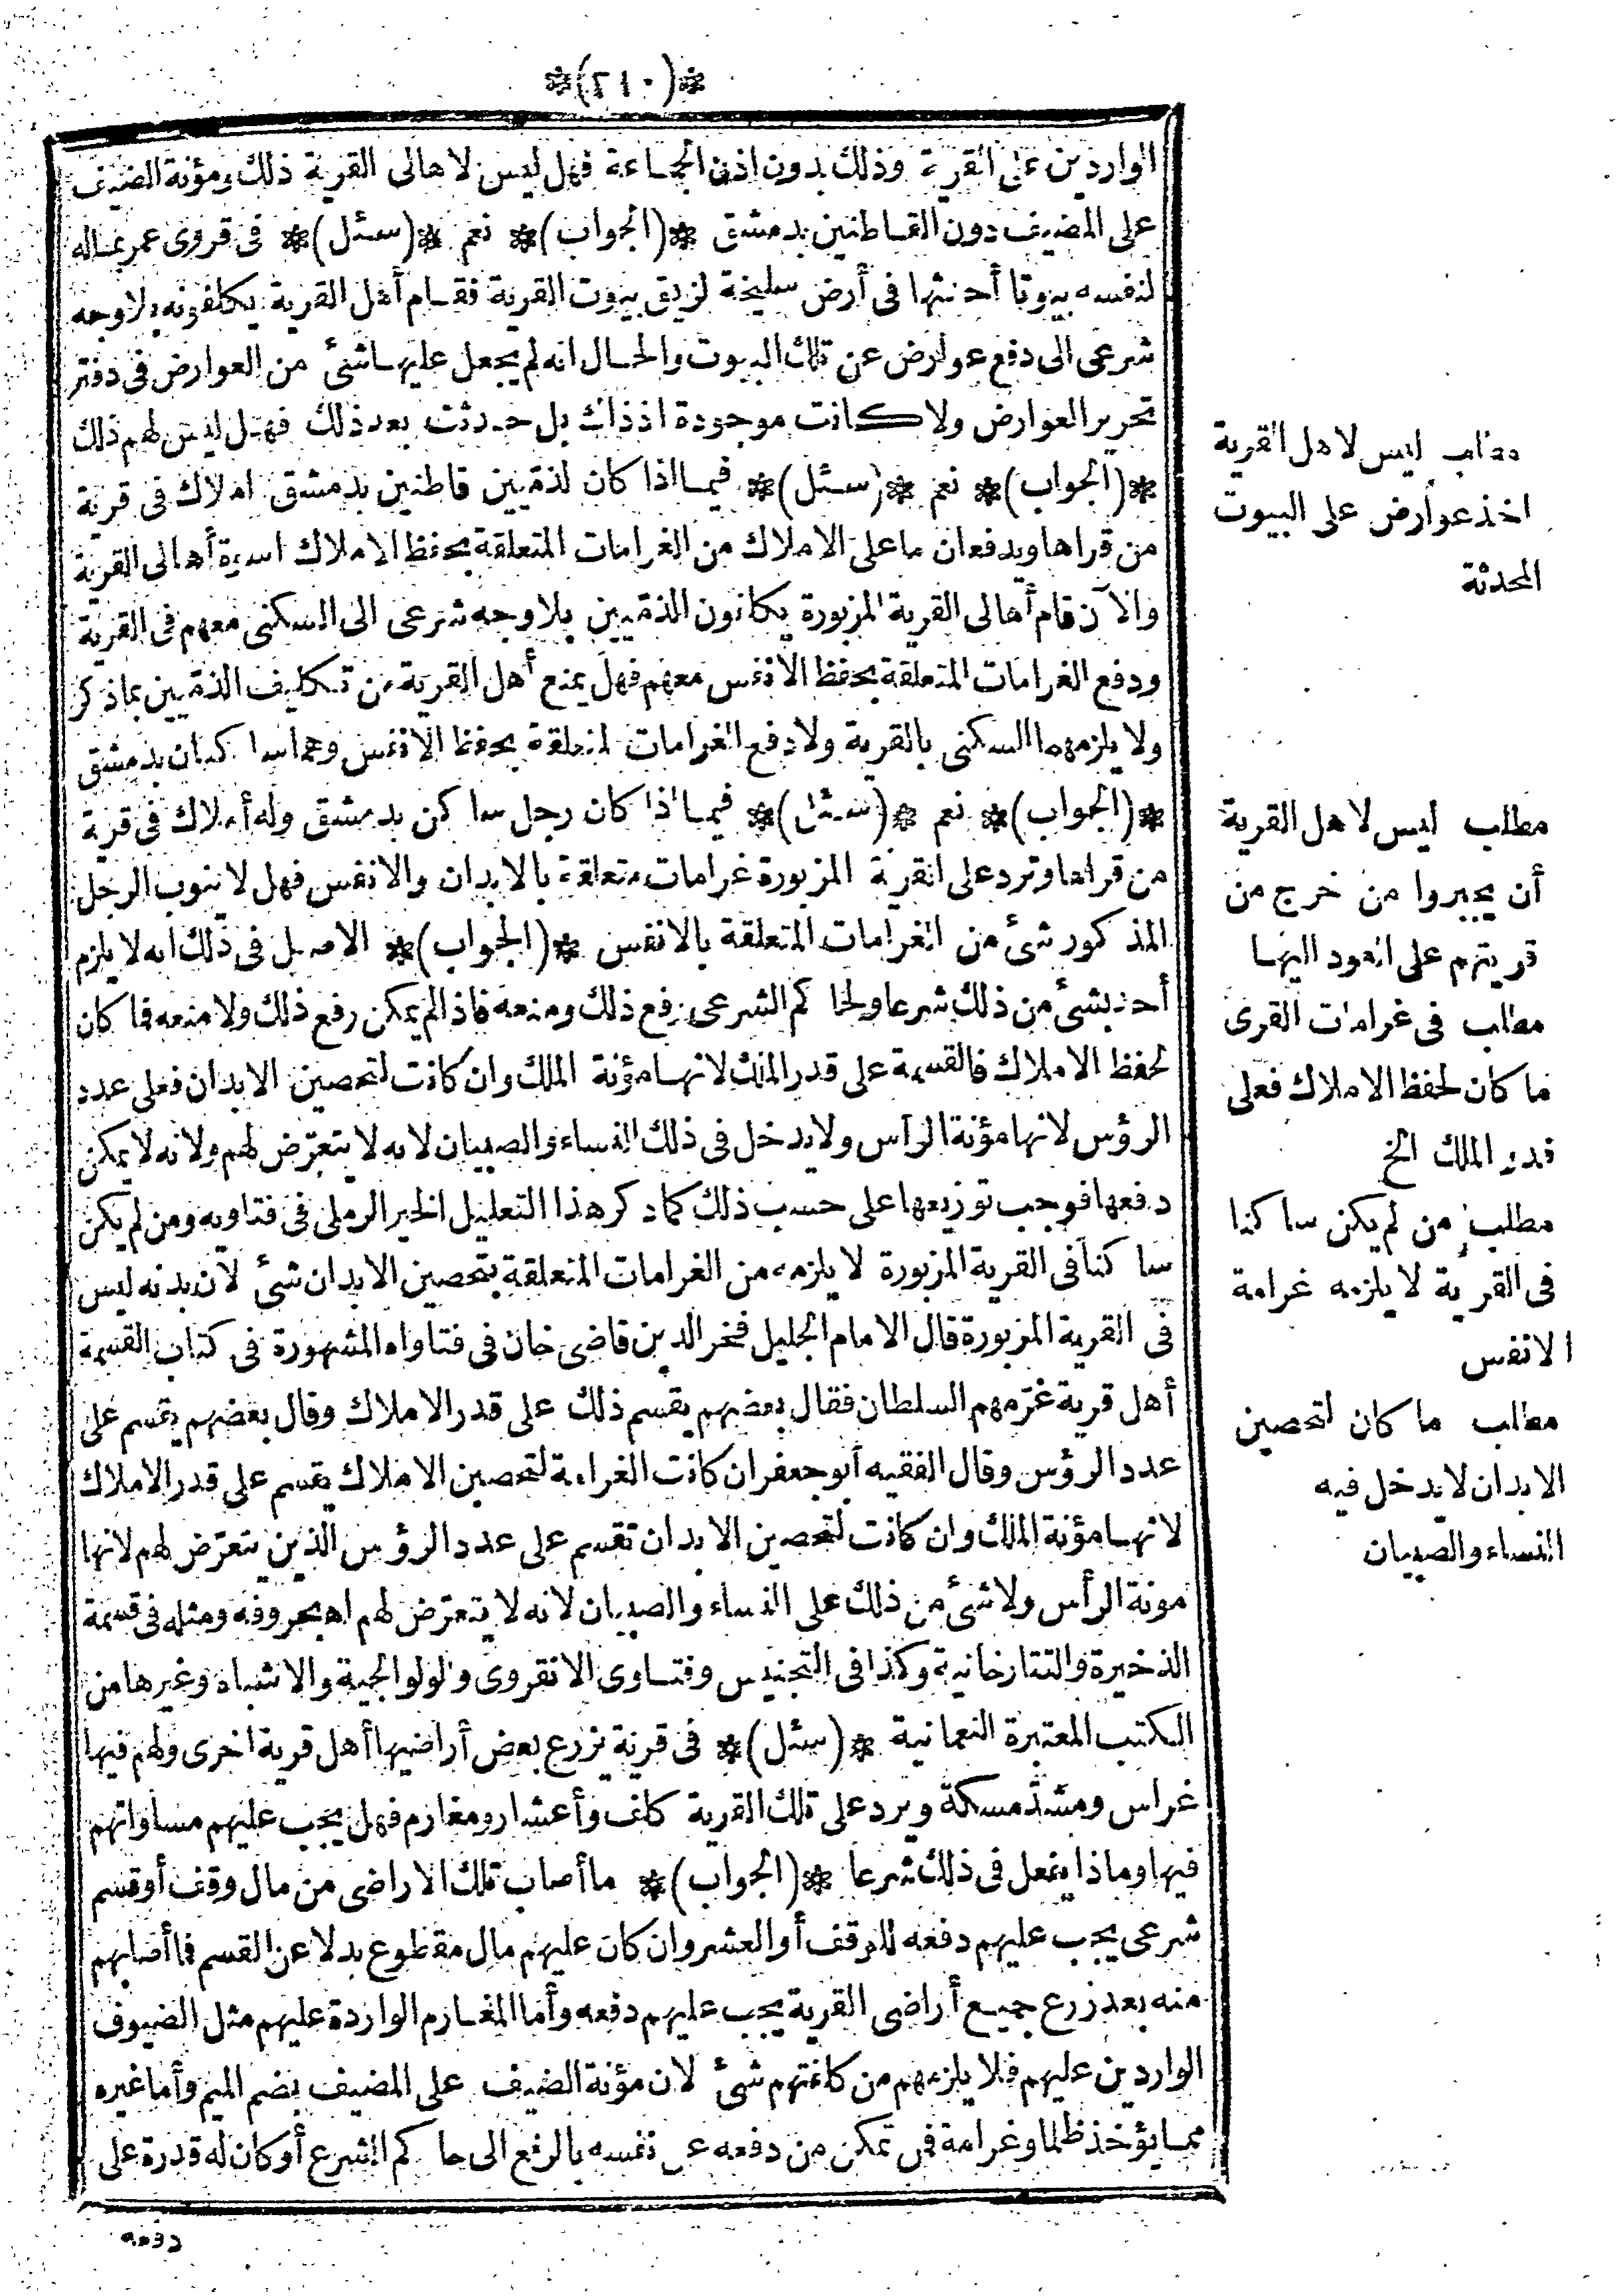 *(٢١٠)*
الواردين على القرية وذلك بدون اذن الجماعة فهل ليس لاهالى القرية ذلك ومؤنة الضيف
على المضيف دون القاطنين بدمشق *(الجواب)* نعم *(سئل)* فى قروى عمر بماله
لنفسه بيوتا أحدثها فى أرض سليخة لزيق بيوت القرية فقام أهل القرية يكلفونه بلا وجه
شرعى الى دفع عوارض عن تلك البيوت والحال انه لم يجعل عليها شئ من العوارض فى دفتر
تحرير العوارض ولا كانت موجودة اذذاك بل حدثت بعد ذلك فهل ليس لهم ذلك
*(الجواب)* نعم *(سئل)* فيما اذا كان لذميين قاطنين بدمشق املاك فى قرية
من قراها ويدفعان ما على الاملاك من الغرامات المتعلقة بحفظ الاملاك اسوة أهالى القرية
والآن قام أهالى القرية المزبورة يكلفون الذميين بلا وجه شرعى الى السكنى معهم فى القرية
ودفع الغرامات المتعلقة بحفظ الانفس معهم فهل يمنع أهل القرية من تكليف الذميين بما ذكر
ولا يلزمهما السكنى بالقرية ولا دفع الغرامات المتعلقة بحفظ الانفس وهما ساكنان بدمشق
*(الجواب)* نعم *(سئل)* فيما اذا كان رجل ساكن بدمشق وله أملاك فى قرية
من قراها وترد على القرية المزبورة غرامات متعلقة بالابدان والانفس فهل لا ينوب الرجل
المذكور شئ من الغرامات المتعلقة بالانفس *(الجواب)* الاصل فى ذلك انه لا يلزم
أحد بشئ من ذلك شرعا والحاكم الشرعى يرفع ذلك ومنعه فاذا لم يمكن رفع ذلك ولا منعه فما كان
لحفظ الاملاك فالقسمة على قدر الملك لانها مؤنة الملك وان كانت لتحصين الابدان فعلى عدد
الرؤس لانها مؤنة الرأس ولا يدخل فى ذلك النساء والصبيان لانه لا يتعرض لهم ولانه لا يمكن
دفعها فوجب توزيعها على حسب ذلك كما ذكر هذا التعليل الخير الرملى فى فتاويه ومن لم يكن
ساكنا فى القرية المزبورة لا يلزمه من الغرامات المتعلقة بتحصين الابدان شئ لان بدنه ليس
فى القرية المزبورة قال الامام الجليل فخر الدين قاضى خان فى فتاواه المشهورة فى كتاب القسمة
أهل قرية غرمهم السلطان فقال بعضهم يقسم ذلك على قدر الاملاك وقال بعضهم يقسم على
عدد الرؤس وقال الفقيه أبو جعفر ان كانت الغرامة لتحصين الاملاك يقسم على قدر الاملاك
لانها مؤنة الملك وان كانت لتحصين الابدان تقسم على عدد الرؤس الذين يتعرض لهم لانها
مونة الرأس ولا شئ من ذلك على النساء والصبيان لانه لا يتعرض لهم اه بحروفه ومثله فى قسمة
الذخيرة والتتارخانية وكذا فى التجنيس وفتاوى الانقروى والولوالجية والاشباه وغيرها من
الكتب المعتبرة النعمانية *(سئل)* فى قرية يزرع بعض أراضيها أهل قرية اخرى ولهم فيها
غراس ومشد مسكة ويرد على تلك القرية كلف وأعشار ومغارم فهل يجب عليهم مساواتهم
فيها وماذا يفعل فى ذلك شرعا *(الجواب)* ما أصاب تلك الاراضى من مال وقف أو قسم
شرعى يجب عليهم دفعه للوقف أو العشر وان كان عليهم مال مقطوع بدلا عن القسم فما أصابهم
منه بعد زرع جميع أراضى القرية يجب عليهم دفعه وأما المغارم الواردة عليهم مثل الضيوف
الواردين عليهم فلا يلزمهم من كلفتهم شئ لان مؤنة الضيف على المضيف بضم الميم وأما غيره
مما يؤخذ ظلما وغرامة فمن تمكن من دفعه عن نفسه بالرفع الى حاكم الشرع أو كان له قدرة على
دفعه
مطلب ليس لاهل القرية
اخذ عوارض على البيوت
المحدثة
مطلب ليس لاهل القرية
أن يجبروا من خرج من
قريتهم على العود اليها
مطلب فى غرامات القرى
ما كان لحفظ الاملاك فعلى
قدر الملك الخ
مطلب من لم يكن ساكنا
فى القرية لا يلزمه غرامة
الانفس
مطلب ما كان لتحصين
الابدان لا يدخل فيه
النساء والصبيان